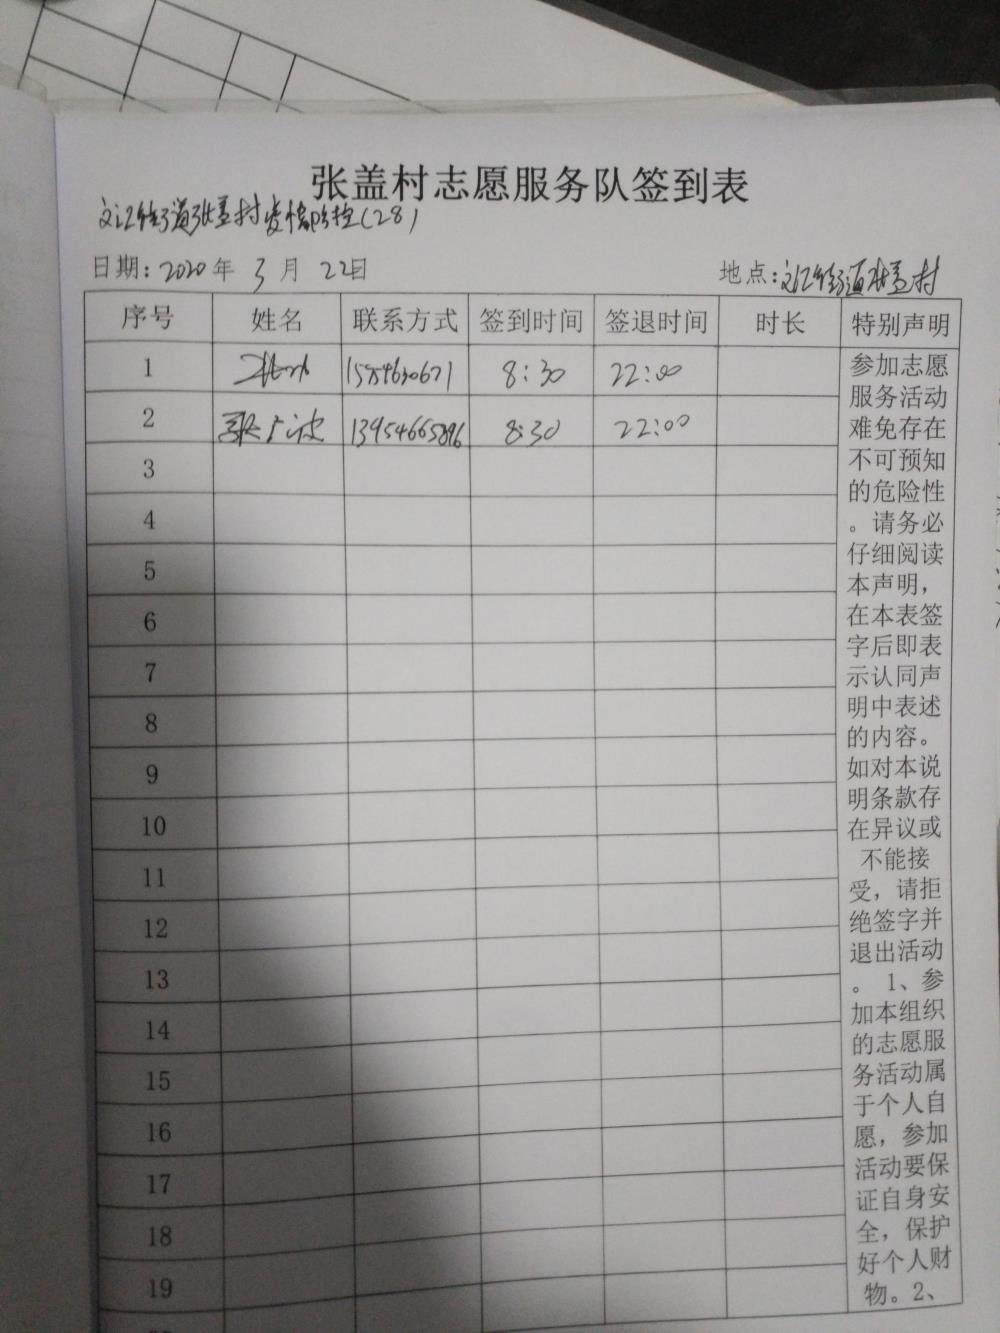 张盖村志愿服务队签到表
文汇街道张盖村疫情防控(28)
日期：2020年 3月 22日 地点：文汇街道张盖村
序号 姓名 联系方式 签到时间 签退时间 时长 特别声明
1 8:30 22:00
2 13954665896 8:30 22:00
3
4
5
6
7
8
9
10
11
12
13
14
15
16
17
18
19
参加志愿
服务活动
难免存在
不可预知
的危险性
。请务必
仔细阅读
本声明，
在本表签
字后即表
示认同声
明中表述
的内容。
如对本说
明条款存
在异议或
不能接
受，请拒
绝签字并
退出活动
。 1、参
加本组织
的志愿服
务活动属
于个人自
愿，参加
活动要保
证自身安
全，保护
好个人财
物。2、